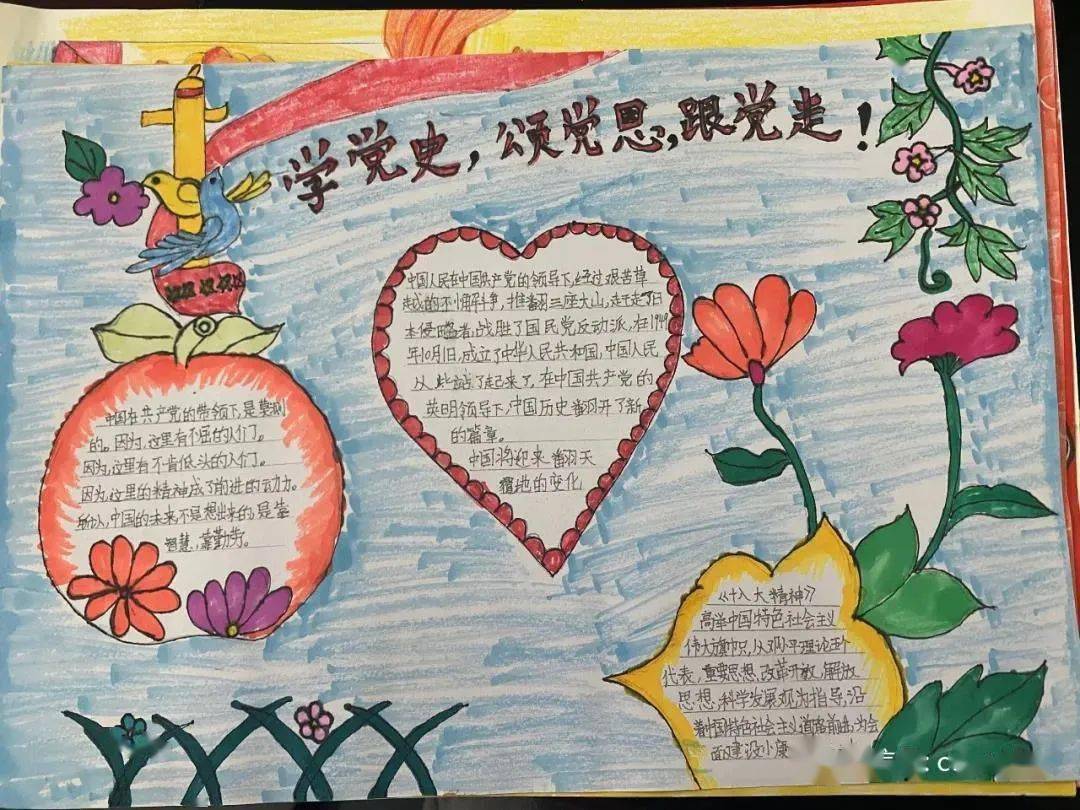 学党史,颂党恩,跟党走!
中国人民在中国共产党的领导下,经过艰苦卓
越的不懈斗争,推翻三座大山,赶走了日
本侵略者,战胜了国民党反动派,在1949
年10月1日,成立了中华人民共和国,中国人民
从此站了起来了,在中国共产党的
英明领导下,中国历史翻开了新
的篇章。
中国将迎来翻天
覆地的变化
中国在共产党的带领下,是莫测
的。因为,这里有不屈的人们。
因为,这里有不肯低头的人们。
因为,这里的精神成了前进的动力。
所以,中国的未来,不是想出来的,是靠
智慧,靠勤劳。
《十八大精神》
高举中国特色社会主义
伟大旗帜,从邓小平理论三个
代表,重要思想,改革开放,解放
思想,科学发展观为指导,沿
着中国特色社会主义道路前进,为会
面建设小康